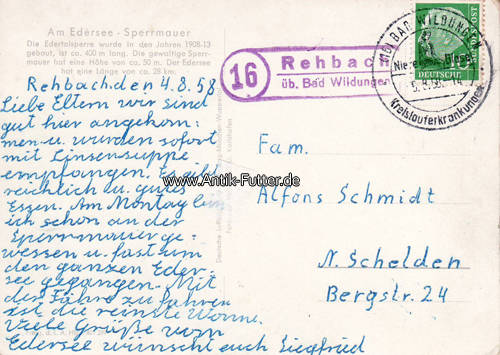 Am Edersee - Sperrmauer
Die Edertalsperre wurde in den Jahren 1908-13
gebaut, ist ca. 400 m lang. Die gewaltige Sperr-
mauer hat eine Höhe von ca. 50 m. Der Edersee
hat eine Länge von ca. 28 km.
Rehbach, den 4.8.58
Liebe Eltern wir sind
gut hier angekom:
men u. wurden sofort
mit Linsensuppe
empfangen. Es gibt
reichlich u. gutes
Essen. Am Montag bin
ich schon an der
Sperrmauer ge-
wessen u. fast um
den ganzen Eder-
see gegangen. Mit
der Fähre zu fahren
ist die reinste Wonne.
Viele Grüße vom
Edersee wünscht euch Siegfried
16
Rehbach
üb. Bad Wildungen
BAD WILDUNGEN
Kreislauferkrankungen
DEUTSCHE
www.Antik-Futter.de
Fam.
Alfons Schmidt
N. Schelden
Bergstr. 24